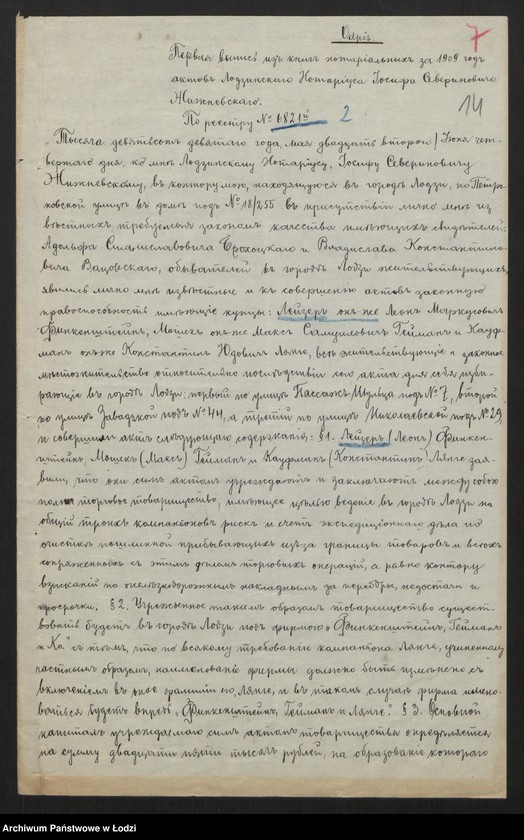 Одріз.
7
Первая выпись изъ книгъ нотаріальныхъ за 1909 годъ
актовъ Лодзинскаго Нотаріуса Іосифа Севериновича
Жижневскаго.
14
По реестру № 6821й 2
Тысяча девятьсотъ девятаго года, мая двадцать второго / Іюня чет-
вертаго дня, ко мнѣ Лодзинскому Нотаріусу, Іосифу Севериновичу
Жижневскому, въ контору мою, находящуюся въ городѣ Лодзи, по Петро-
ковской улицѣ въ домѣ подъ № 18/255 въ присутствіи лично мнѣ из-
вѣстныхъ требуемыя закономъ качества имѣющихъ свидѣтелей:
Адольфа Станиславовича и Владислава Константино-
вича Вацовскаго, обывателей въ городѣ Лодзи жительствующихъ,
явились лично мнѣ извѣстные и къ совершенію актовъ законную
правоспособность имѣющіе купцы: Лейзеръ онъ-же Леонъ Маркусовъ
Финкенштейнъ, Мошекъ онъ-же Максъ Самуиловичъ Гейманъ и Кауф-
манъ онъ-же Константинъ Юдовичъ Лянге, всѣ жительствующіе и законное
мѣстожительство относительно послѣдствій сего акта для себя изби-
рающіе въ городѣ Лодзи: первый по улицѣ Пассажъ-Мейера подъ № 7, второй
по улицѣ Завадской подъ № 44, а третій по улицѣ Николаевской подъ № 29,
и совершили актъ слѣдующаго содержанія: § 1. Лейзеръ (Леонъ) Финкен-
штейнъ, Мошекъ (Максъ) Гейманъ и Кауфманъ (Константинъ) Лянге зая-
вили, что они симъ актомъ учреждаютъ и заключаютъ между собою
полное торговое товарищество, имѣющее цѣлью веденіе въ городѣ Лодзи на
общій троихъ компаньоновъ рискъ и счетъ экспедиціоннаго дѣла по
очисткѣ пошлиной прибывающихъ изъ-за границы товаровъ и всѣхъ
сопряженныхъ съ этимъ дѣломъ торговыхъ операцій, а равно контору
взысканій по желѣзнодорожнымъ накладнымъ за переборы, недостачи и
просрочки. § 2. Учрежденное такимъ образомъ товарищество сущест-
вовать будетъ въ городѣ Лодзи подъ фирмою „Финкенштейнъ, Гейманъ
и Ко." съ тѣмъ, что по всякому требованію компаньона Лянге, учиненному
частнымъ образомъ, наименованіе фирмы должно быть измѣнено съ
включеніемъ въ оное фамиліи его, Лянге, и въ такомъ случаѣ фирма имено-
ваться будетъ впредь „Финкенштейнъ, Гейманъ и Лянге." § 3. Основной
капиталъ учреждаемаго симъ актомъ товарищества опредѣляется
на сумму двадцати пяти тысячъ рублей, на образованіе котораго
Archiwum Państwowe w Łodzi